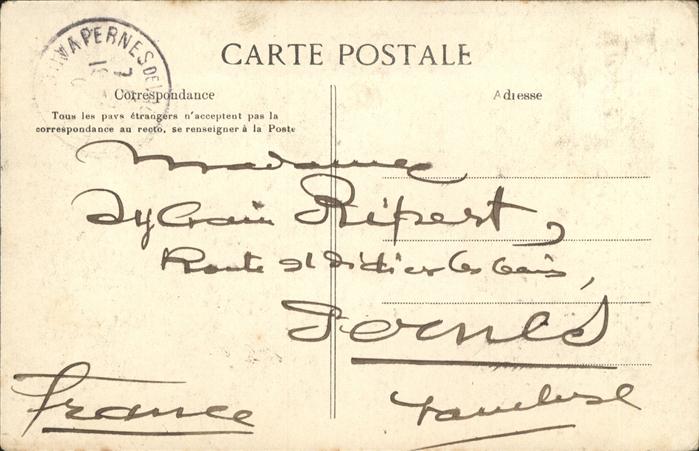 PERNES
CARTE POSTALE
Correspondance
Adresse
Tous les pays étrangers n'acceptent pas la
correspondance au recto, se renseigner à la Poste
Madame
Sylvain Ripert,
Route St Didier les bains,
Pernes
France
Vaucluse